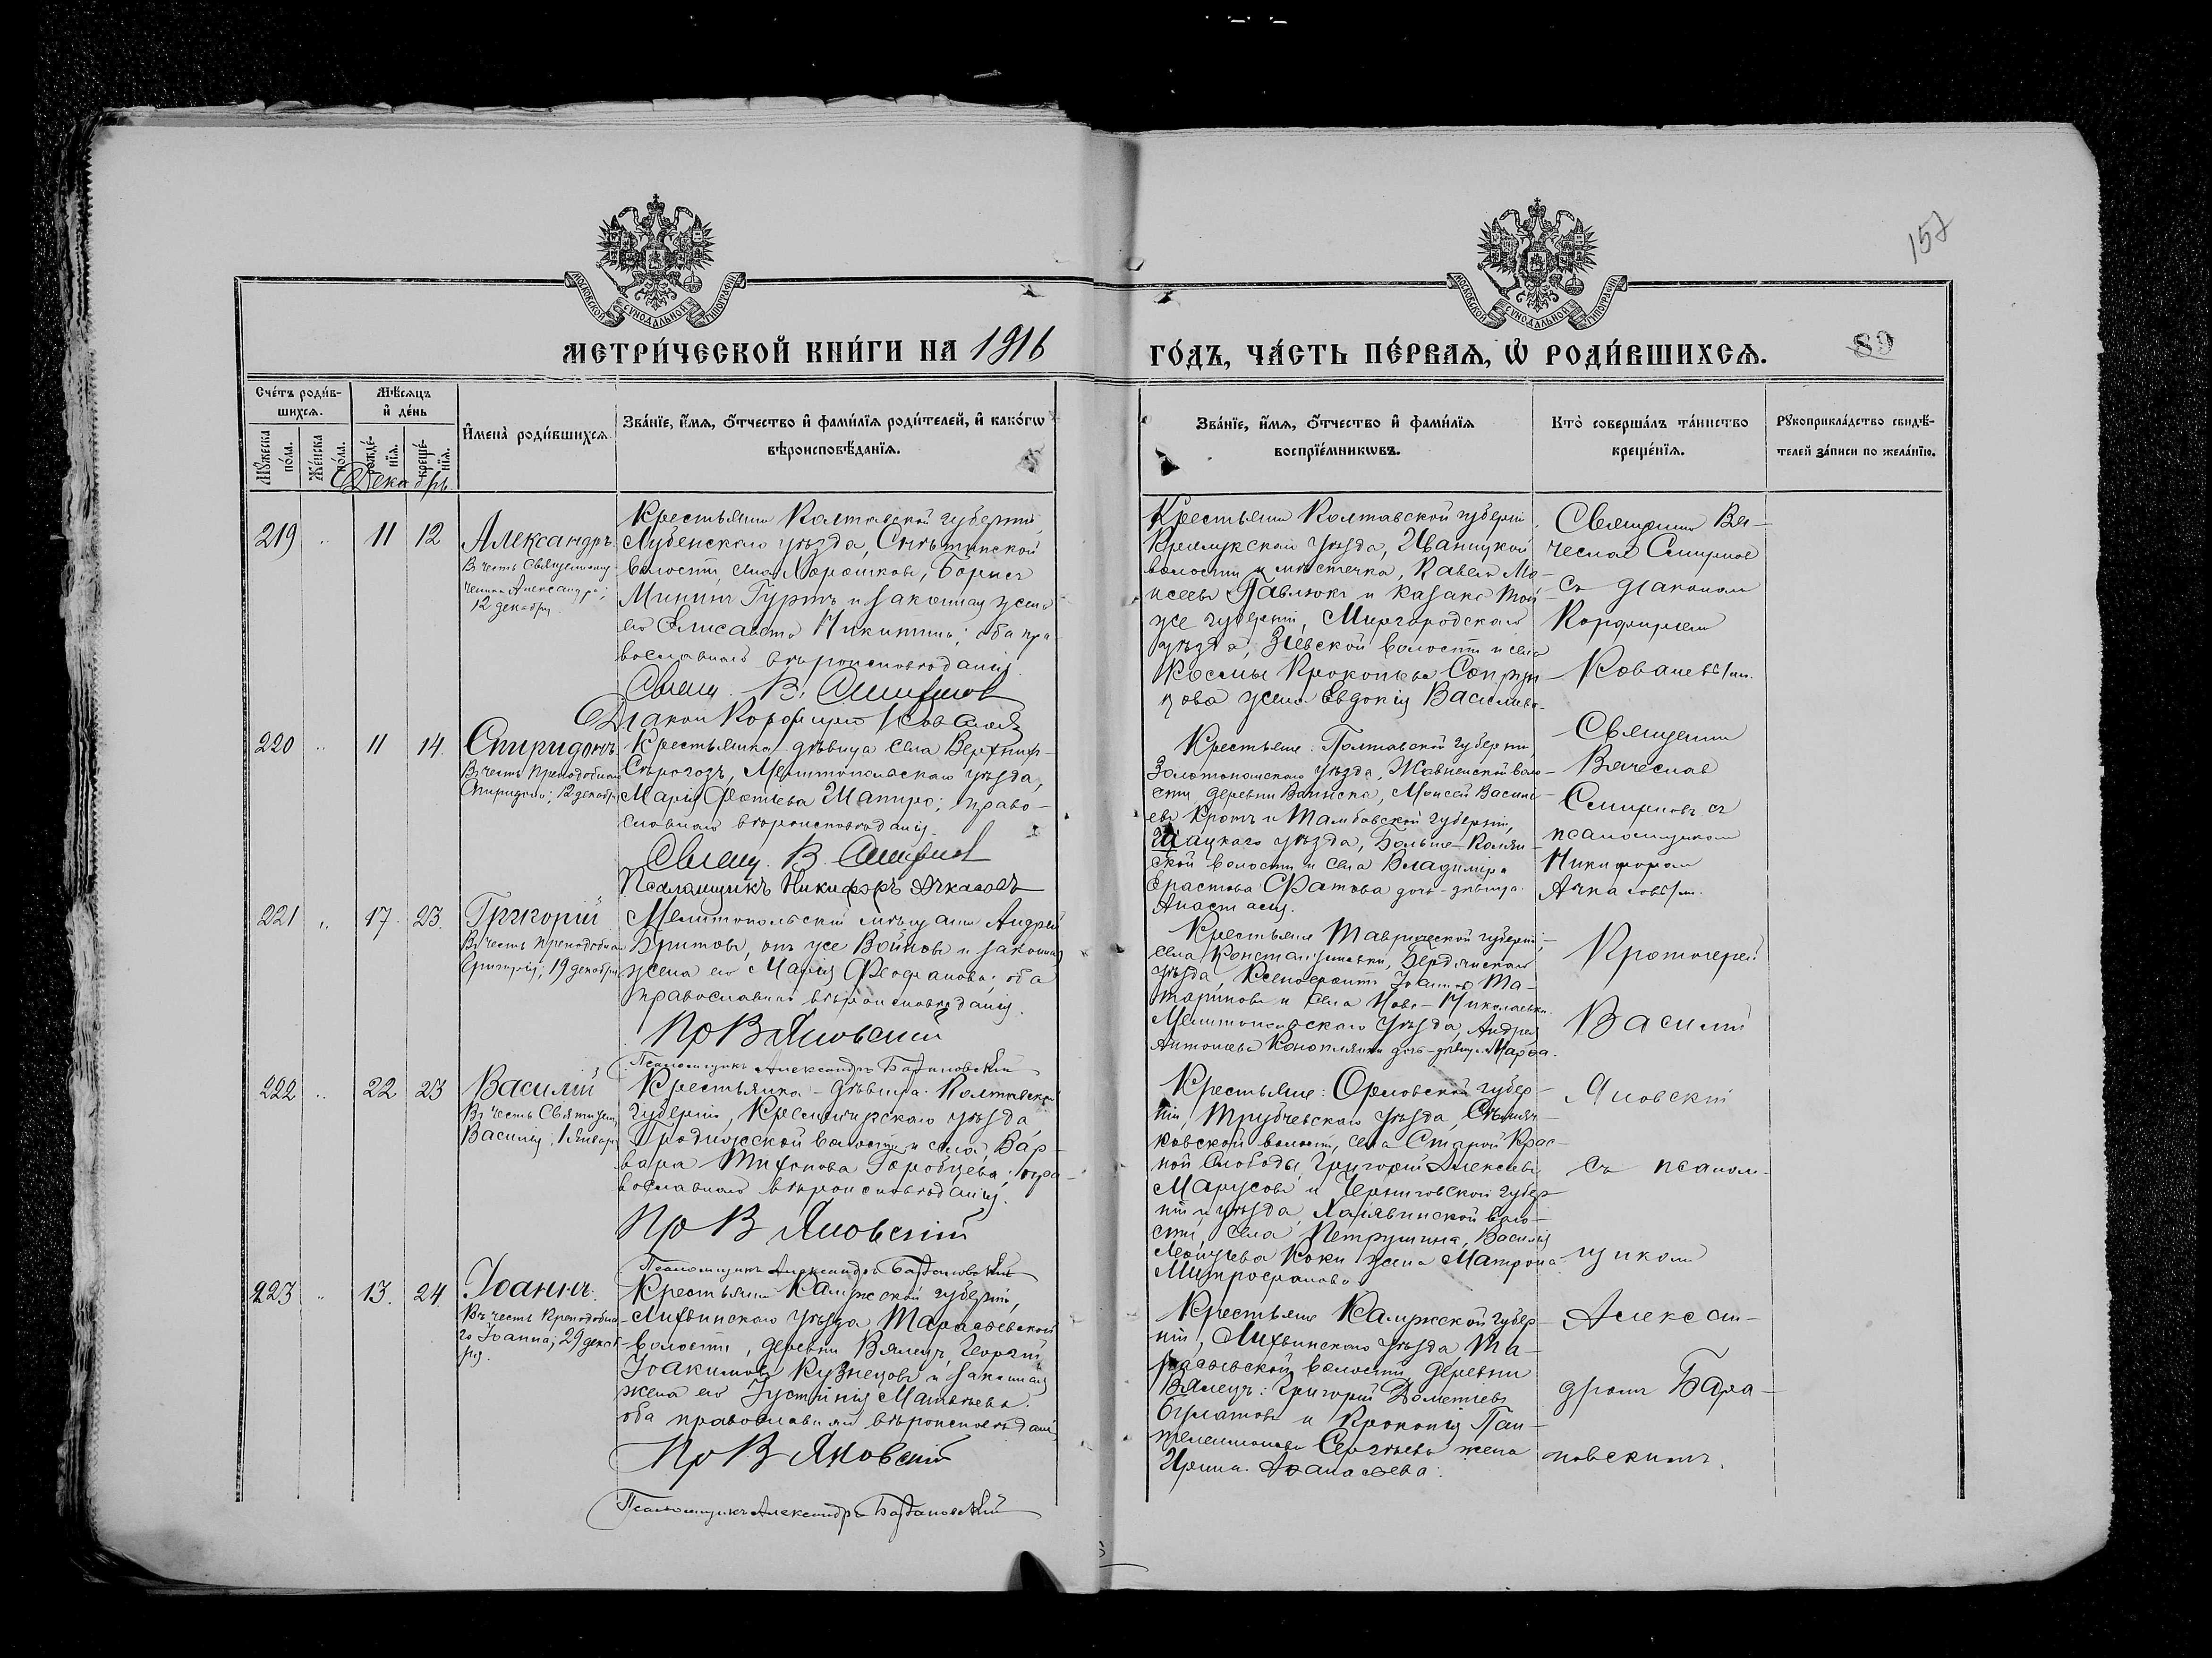 157
МОСКОВСКОЙ СѴНОДАЛЬНОЙ ТИПОГРАФІИ
МОСКОВСКОЙ СѴНОДАЛЬНОЙ ТИПОГРАФІИ
МЕТРИ́ЧЕСКОЙ КНИ́ГИ НА 1916
ГО́ДЪ, ЧА́СТЬ ПЕ́РВАЯ, Ѡ РОДИ́ВШИХСѦ.
89
Сче́тъ роди́в-
шихсѧ.
Мѣ́сѧцъ
и҆ де́нь
Мꙋ́жеска
по́ла.
Же́нска
по́ла.
рожде́-
нїѧ.
креще́-
нїѧ.
И҆мена̀ роди́вшихсѧ
Зва́нїе, и҆́мѧ, ѻ҆́тчество и҆ фами́лїѧ роди́телей, и҆ како́гѡ
вѣроисповѣ́данїѧ.
Зва́нїе, и҆́мѧ, ѻ҆́тчество и҆ фами́лїѧ
воспрїе́мникѡвъ.
Кто̀ соверша́лъ та́инство
креще́нїѧ.
Рꙋкоприкла́дство свидѣ́-
телей за́писи по жела́нїю.
Декабрь.
219 " 11 12 Александръ
Въ честь Священному-
ченика Александра;
12 декабря
Крестьянинъ Полтавской губерніи,
Лубенскаго уѣзда, Снѣтинской
волости, села Хорошковъ, Борисъ
Мининъ Гуртъ и законная жена
его Елисавета Никитина; оба пра-
вославнаго вѣроисповѣданія.
Свящ. В. Смирновъ
Діаконъ Корфирій Ковалевъ
Крестьянинъ Полтавской губерніи
Прилукскаго уѣзда, Иваницкой
волости и мѣстечка, Павелъ Мо-
исеевъ Павлюкъ и казака той
же губерніи, Миргородскаго
уѣзда, Зуевской волости и села
Космы Прокопьева
жена Евдокія Васильева.
Священникъ Вя-
чеславъ Смирновъ
съ діакономъ
Порфиріемъ
Ковалевымъ.
220 " 11 14. Спиридонъ
Въ честь Преподобнаго
Спиридона; 12 декабря
Крестьянка-дѣвица села Верхнихъ-
Сѣрогозъ, Мелитопольскаго уѣзда,
Марія Фотіева Шапиро; право-
славнаго вѣроисповѣданія.
Свящ. В. Смирновъ
Псаломщикъ Никифоръ Ачкасовъ
Крестьяне: Полтавской губерніи
Золотоношскаго уѣзда, воло-
сти деревни Моисей Василь-
евъ Кротъ и Тамбовской губерніи,
Шацкаго уѣзда, Больше-
ской волости и села Владиміра
Ерастова Фатова дочь-дѣвица
Анастасія.
Священникъ
Вячеславъ
Смирновъ съ
псаломщикомъ
Никифоромъ
Ачкасовымъ.
221 " 17. 23. Григорій
Въ честь Преподобна
Григорія; 19 декабря
Мелитопольскій мѣщанинъ Андрей
Бритовъ, онъ же Войновъ и законная
жена его Марія Феофанова; оба
православнаго вѣроисповѣданія.
Пр В Яновскій
Псаломщикъ Александръ Базановскій
Крестьяне Таврической губерніи,
села Константиновки, Бердянскаго
уѣзда, Ксенофонтъ Іоанновъ Та-
тариновъ и села Ново-Николаевки
Мелитопольскаго уѣзда, Андрея
Антоніева Коноплянки дочь-дѣвица Марѳа.
Протоіерей
Василій
222 " 22 23 Василій
Въ честь Святителя
Василія, 1 января
Крестьянка-дѣвица Полтавской
губерніи, Кременчугскаго уѣзда
волости и села, Вар-
вара Тихонова Горобцева; пра-
вославнаго вѣроисповѣданія.
Пр В Яновскій
Псаломщикъ Александръ Базановскій
Крестьяне: Орловской губер-
ніи, Трубчевскаго уѣзда,
ковской волости, села Старой Крас-
ной Слободы Григорій Алексѣевъ
Марусовъ и Черниговской губер
ніи и уѣзда, Халявинской воло-
сти, села Петрушина, Василія
Коки жена Матрона
Митрофанова.
Яновскій
съ псалом-
щикомъ
223 " 13. 24 Іоаннъ.
Въ честь Преподобна-
го Іоанна, 29 декаб-
ря.
Крестьянинъ Калужской губерніи,
Лихвинскаго уѣзда
волости, деревни Вялецъ, Георгій
Іоакимовъ Кузнецовъ и законная
жена его Іустинія Матвѣева.
оба православнаго вѣроисповѣданія.
Пр В Яновскій
Псаломщикъ Александръ Базановскій
Крестьяне Калужской губер-
ніи, Лихвинскаго уѣзда
волости деревни
Вялецъ: Григорій Дометіевъ
и Прокопія Пан-
телеимонова Сергѣева жена
Ирина Аѳанасьева.
Алексан-
дромъ База-
новскимъ.